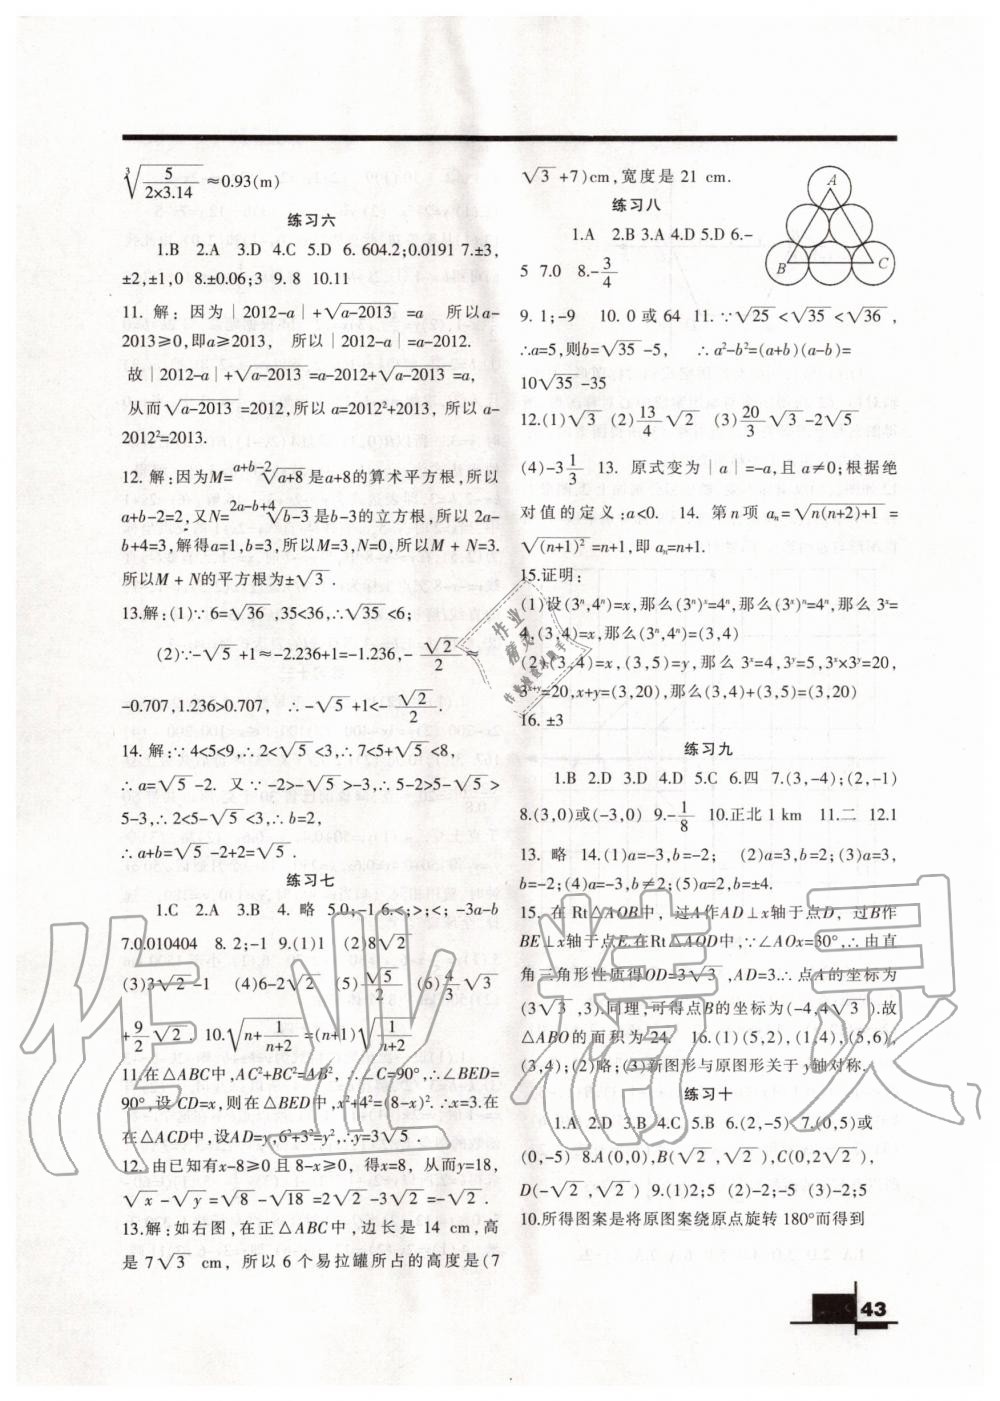 ∛(5/(2×3.14)) ≈0.93(m)
练习六
1.B 2.A 3.D 4.C 5.D 6. 604.2;0.0191 7.±3,
±2,±1,0 8.±0.06;3 9. 8 10.11
11. 解：因为|2012-a|+√(a-2013) =a 所以a-
2013≥0,即a≥2013, 所以|2012-a|=a-2012.
故|2012-a|+√(a-2013)=a-2012+√(a-2013)=a,
从而√(a-2013)=2012,所以 a=2012²+2013, 所以 a-
2012²=2013.
12. 解:因为M=ᵃ⁺ᵇ⁻²√(a+8)是a+8的算术平方根,所以
a+b-2=2,又N=²ᵃ⁻ᵇ⁺⁴√(b-3)是b-3的立方根,所以2a-
b+4=3,解得a=1,b=3,所以M=3,N=0,所以M+N=3.
所以M + N的平方根为±√3 .
13.解:(1)∵6=√36 ,35<36,∴√35 <6;
(2)∵-√5 +1≈-2.236+1=-1.236,- √2/2 ≈
-0.707,1.236>0.707, ∴-√5 +1<- √2/2 .
14. 解:∵4<5<9,∴2<√5 <3,∴7<5+√5 <8,
∴a=√5 -2. 又∵-2>-√5 >-3,∴5-2>5-√5 >
5-3,∴2<5-√5 <3,∴b=2,
∴a+b=√5 -2+2=√5 .
练习七
1.C 2.A 3.B 4. 略 5.0;-1 6.<;>;<; -3a-b
7.0.010404 8. 2;-1 9.(1)1 (2)8√2
(3)3√2 -1 (4)6-2√2 (5)√5/2 (6)4/3√3
+9/2√2 . 10.√(n+1/(n+2)) =(n+1)√(1/(n+2))
11.在△ABC中,AC²+BC²=AB², ∴∠C=90°,∴∠BED=
90°,设CD=x,则在△BED中,x²+4²=(8-x)².∴x=3.在
在△ACD中,设AD=y,6²+3²=y²,∴y=3√5 .
12. 由已知有x-8≥0且8-x≥0, 得x=8, 从而y=18,
√x -√y =√8 -√18 =2√2 -3√2 =-√2 .
13.解:如右图,在正△ABC中,边长是 14 cm,高
是 7√3 cm, 所以 6 个易拉罐所占的高度是(7
√3 +7)cm,宽度是 21 cm.
练习八
A
B
C
1.A 2.B 3.A 4.D 5.D 6.-
5 7.0 8.-3/4
9. 1;-9 10. 0 或 64 11.∵√25 <√35 <√36 ,
∴a=5,则b=√35 -5, ∴a²-b²=(a+b)(a-b)=
10√35 -35
12.(1)√3 (2)13/4√2 (3)20/3√3 -2√5
(4)-3 1/3 13. 原式变为|a|=-a,且a≠0;根据绝
对值的定义:a<0. 14. 第n项 aₙ=√(n(n+2)+1) =
√((n+1)²) =n+1,即 aₙ=n+1.
15.证明:
(1)设(3ⁿ,4ⁿ)=x,那么(3ⁿ)ˣ=4ⁿ,那么(3ˣ)ⁿ=4ⁿ,那么3ˣ=
4,(3,4)=x,那么(3ⁿ,4ⁿ)=(3,4)
(2)(3,4)=x,(3,5)=y,那么 3ˣ=4,3ʸ=5,3ˣ×3ʸ=20,
3ˣ⁺ʸ=20,x+y=(3,20),那么(3,4)+(3,5)=(3,20)
16. ±3
练习九
1.B 2.D 3.D 4.D 5.C 6.四 7.(3,-4);(2,-1)
8.(3,0)或(-3,0) 9.-1/8 10.正北1 km 11.二 12.1
13. 略 14.(1)a=-3,b=-2; (2)a=3,b=2;(3)a=3,
b=-2;(4)a=-3,b≠2;(5)a=2,b=±4.
15. 在 Rt△AOB中, 过A作AD⊥x轴于点D, 过B作
BE⊥x轴于点E.在Rt△AOD中,∵∠AOx=30°,∴由直
角三角形性质得OD=3√3 ,AD=3.∴点A的坐标为
(3√3 ,3).同理,可得点B的坐标为(-4,4√3 ).故
△ABO的面积为24. 16.(1)(5,2),(1,4),(5,6),
(3,4);(2)略;(3)新图形与原图形关于y轴对称.
练习十
1.A 2.D 3.B 4.C 5.B 6.(2,-5) 7.(0,5)或
(0,-5) 8.A(0,0),B(√2 ,√2 ),C(0,2√2 ),
D(-√2 ,√2 ) 9.(1)2;5 (2)-2;-5 (3)-2;5
10.所得图案是将原图案绕原点旋转180°而得到
43
作业精灵
作业
精灵